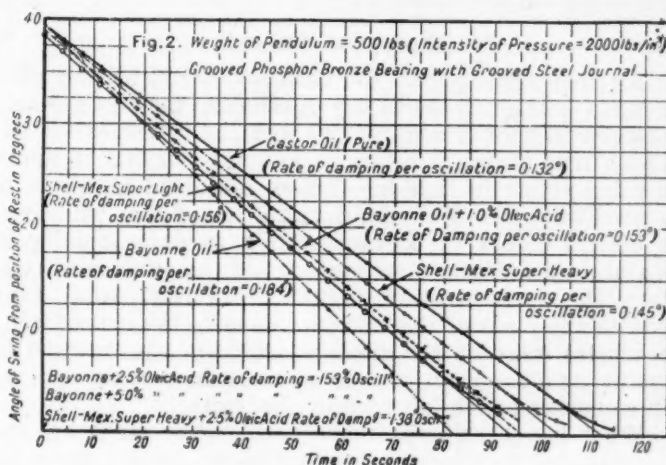 Fig. 2. Weight of Pendulum = 500 lbs (Intensity of Pressure = 2000 lbs/in²
Grooved Phosphor Bronze Bearing with Grooved Steel Journal
Castor Oil (Pure)
(Rate of damping per oscillation = 0.132°)
Shell-Mex Super Light
(Rate of damping per
oscillation = 0.156)
Bayonne Oil + 1.0% Oleic Acid
(Rate of Damping per oscillation = 0.153°)
Bayonne Oil
(Rate of damping per
oscillation = 0.184)
Shell-Mex Super Heavy
(Rate of damping per
oscillation = 0.145°)
Bayonne + 2.5% Oleic Acid. Rate of damping = .153% Oscillⁿ
Bayonne + 5.0% " " " " " " "
Shell-Mex. Super Heavy + 2.5% Oleic Acid Rate of Dampᵍ = 1.38 Oscⁿ
Angle of Swing from position of Rest in Degrees
40
30
20
10
0
0 10 20 30 40 50 60 70 80 90 100 110 120
Time in Seconds